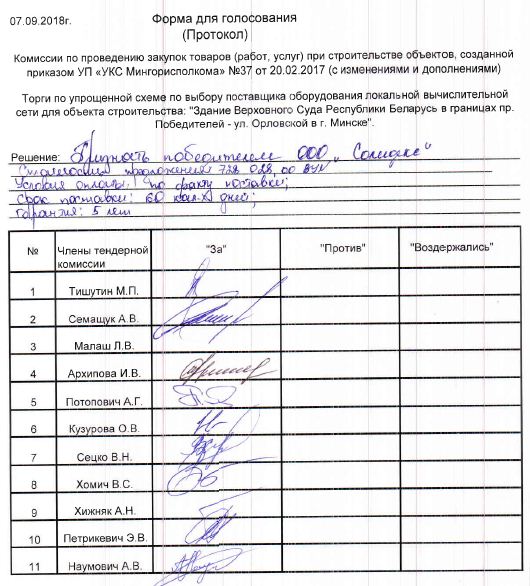 07.09.2018г.
Форма для голосования
(Протокол)
Комиссии по проведению закупок товаров (работ, услуг) при строительстве объектов, созданной
приказом УП «УКС Мингорисполкома» №37 от 20.02.2017 (с изменениями и дополнениями)
Торги по упрощенной схеме по выбору поставщика оборудования локальной вычислительной
сети для объекта строительства: "Здание Верховного Суда Республики Беларусь в границах пр.
Победителей - ул. Орловской в г. Минске".
Решение: Признать победителем ООО „
предложения 728 028,00 BYN
Условия оплаты: по факту поставки;
Срок поставки: 60 кал. дней;
Гарантия: 5 лет
№ Члены тендерной комиссии "За" "Против" "Воздержались"
1 Тишутин М.П.
2 Семащук А.В.
3 Малаш Л.В.
4 Архипова И.В.
5 Потопович А.Г.
6 Кузурова О.В.
7 Сецко В.Н.
8 Хомич В.С.
9 Хижняк А.Н.
10 Петрикевич Э.В.
11 Наумович А.В.